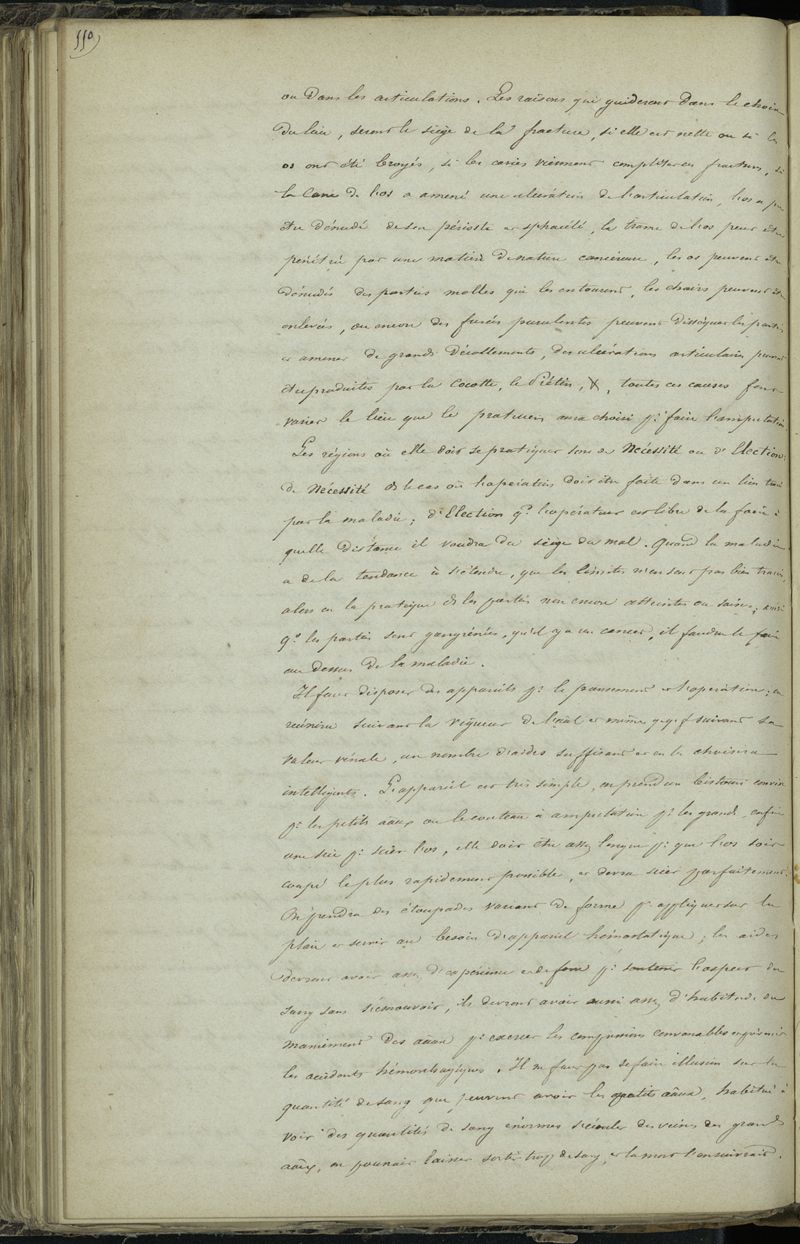 550
ou Dans les articulations. Les raisons qui guideront dans le choix
Du lieu, seront le siège de la fracture, si elle est nette ou si les
os ont été broyés, si les caries viennent compliquer ces fractures, si
la Carie de l'os a amené une ulcération de l'articulation, l'os a pu
être dénudé de son périoste et sphacélé, la trame de l'os peut être
pénétrée par une matière de nature cancéreuse, les os peuvent être
dénudés des parties molles qui les entourent, les chairs peuvent être
enlevées, ou encore des fusées purulentes peuvent disséquer les parties
et amener de grands décollements, des ulcérations articulaires peuvent
être produites par la Cocotte, le Piétin, &, toutes ces causes font
varier le lieu que le praticien aura choisi pr faire l'amputation.
Les régions où elle doit se pratiquer sont de Nécessité ou d'Election;
de Nécessité ds le cas où l'opération doit être faite dans un lieu tracé
par la maladie; d'Election qd l'opérateur est libre de la faire à
quelle distance il voudra du siège du mal. Quand la maladie
a de la tendance à s'étendre, que les limites n'en sont pas bien tracées,
alors on la pratique ds les parties non encore atteintes ou saines; ainsi
qd les parties sont gangrénées, qu'il y a un cancer, il faudra le faire
au dessus de la maladie.
Il faut disposer des appareils pr le pansement et l'opération; on
réunira suivant la vigueur de l'aal et même qqf suivant sa
valeur vénale, un nombre d'aides suffisant et on les choisira
intelligents. L'appareil est très simple, on prend un bistouri convexe
pr les petits aaux ou le couteau à amputation pr les grands, enfin
une scie pr scier l'os, elle doit être assez longue pr que l'os soit
coupé le plus rapidement possible, et devra scier parfaitement.
On prendra des étoupades variant de forme pr appliquer sur la
plaie et servir au besoin d'appareil hémostatique; les aides
devront avoir assez d'expérience et de force pr soutenir l'aspect du
sang sans s'émouvoir, ils devront avoir aussi assez d'habitude du
maniement des aaux pr exercer les compressions convenables et prévenir
les accidents hémorrhagiques. Il ne faut pas se faire illusion sur la
quantité de sang que peuvent avoir les petits aaux, habitué à
voir des quantités de sang énormes s'écouler des veines des grands
aaux, on pourrait laisser sortir trop de sang et la mort s'ensuivrait.